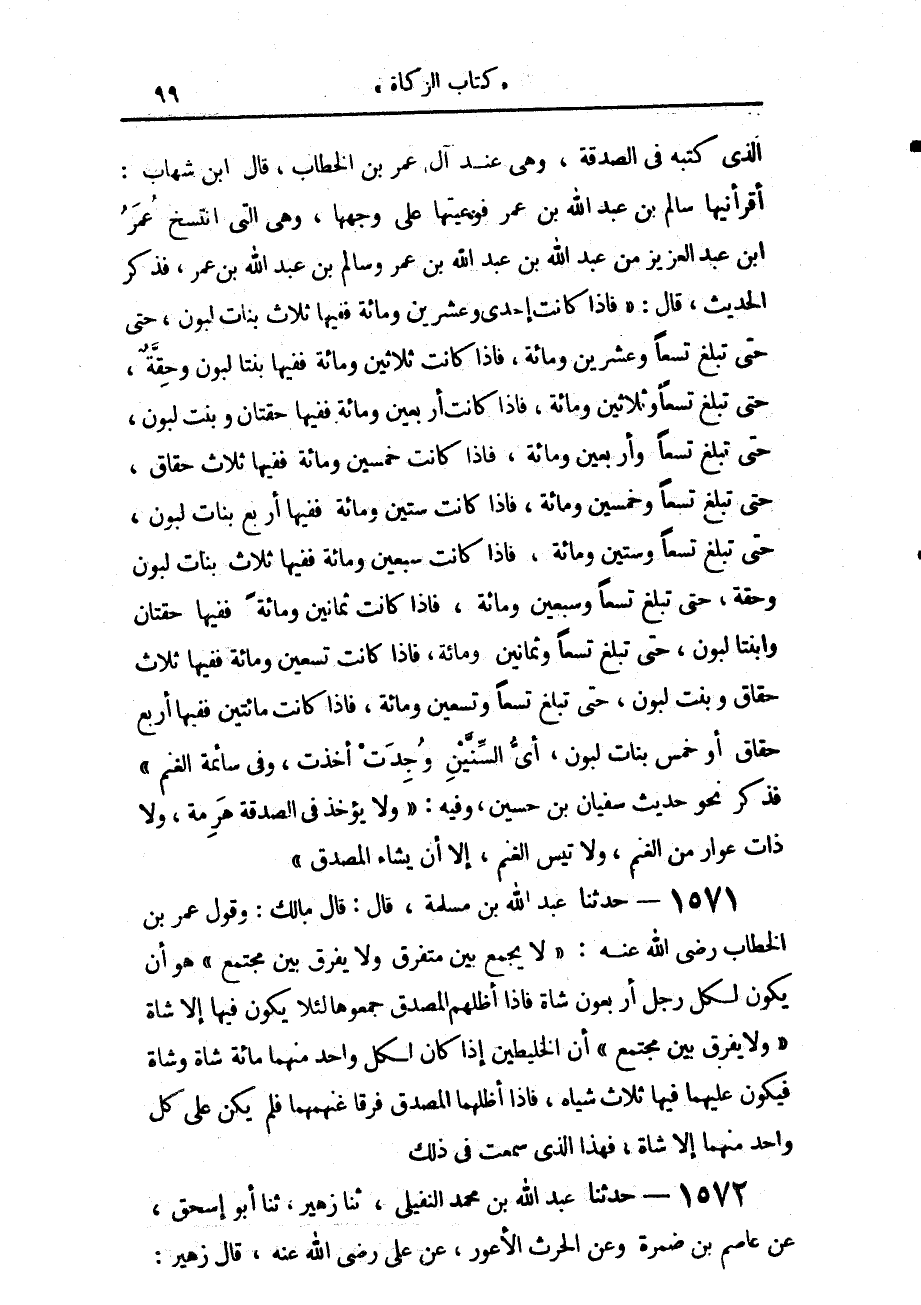 « كتاب الزكاة » ٩٩
الذى كتبه فى الصدقة ، وهى عند آل عمر بن الخطاب ، قال ابن شهاب :
أقرأنيها سالم بن عبد الله بن عمر فوعيتها على وجهها ، وهى التى انتسخ عُمَرُ
ابن عبد العزيز من عبد الله بن عبد الله بن عمر وسالم بن عبد الله بن عمر ، فذكر
الحديث ، قال : « فاذا كانت إحدى وعشرين ومائة ففيها ثلاث بنات لبون ، حتى
حتى تبلغ تسعاً وعشرين ومائة ، فاذا كانت ثلاثين ومائة ففيها بنتا لبون وحِقَّةٌ ،
حتى تبلغ تسعاً وثلاثين ومائة ، فاذا كانت أربعين ومائة ففيها حقتان وبنت لبون ،
حتى تبلغ تسعاً وأربعين ومائة ، فاذا كانت خمسين ومائة ففيها ثلاث حقاق ،
حتى تبلغ تسعاً وخمسين ومائة ، فاذا كانت ستين ومائة ففيها أربع بنات لبون ،
حتى تبلغ تسعاً وستين ومائة ، فاذا كانت سبعين ومائة ففيها ثلاث بنات لبون
وحقة ، حتى تبلغ تسعاً وسبعين ومائة ، فاذا كانت ثمانين ومائةً ففيها حقتان
وابنتا لبون ، حتى تبلغ تسعاً وثمانين ومائة ، فاذا كانت تسعين ومائة ففيها ثلاث
حقاق وبنت لبون ، حتى تبلغ تسعاً وتسعين ومائة ، فاذا كانت مائتين ففيها أربع
حقاق أو خمس بنات لبون ، أىُّ السِّنَّيْنِ وُجِدَتْ أخذت ، وفى سائمة الغنم »
فذكر نحو حديث سفيان بن حسين ، وفيه : « ولا يؤخذ فى الصدقة هَرِمة ، ولا
ذات عوار من الغنم ، ولا تيس الغنم ، إلا أن يشاء المصدق »
١٥٧١ — حدثنا عبد الله بن مسلمة ، قال : قال مالك : وقول عمر بن
الخطاب رضى الله عنه : « لا يجمع بين متفرق ولا يفرق بين مجتمع » هو أن
يكون لكل رجل أربعون شاة فاذا أظلهم المصدق جمعوها لئلا يكون فيها إلا شاة
« ولا يفرق بين مجتمع » أن الخليطين إذا كان لكل واحد منهما مائة شاة وشاة
فيكون عليهما فيها ثلاث شياه ، فاذا أظلهما المصدق فرقا غنمهما فلم يكن على كل
واحد منهما إلا شاة ، فهذا الذى سمعت فى ذلك
١٥٧٢ — حدثنا عبد الله بن محمد النفيلى ، ثنا زهير ، ثنا أبو إسحق ،
عن عاصم بن ضمرة وعن الحرث الأعور ، عن على رضى الله عنه ، قال زهير :